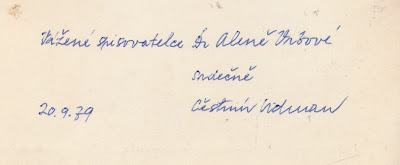 Vážené spisovatelce Dr Aleně Vrbové
srdečně
20.9.79 Čestmír